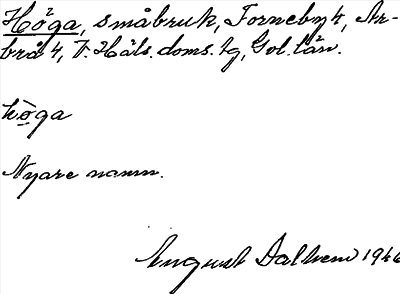 Höga, småbruk, Forneby 4, Ar-
brå 4, V. Häls. doms. tg, Gvl. län.
hö̀ga
Nyare namn.
August Dalhem 1946